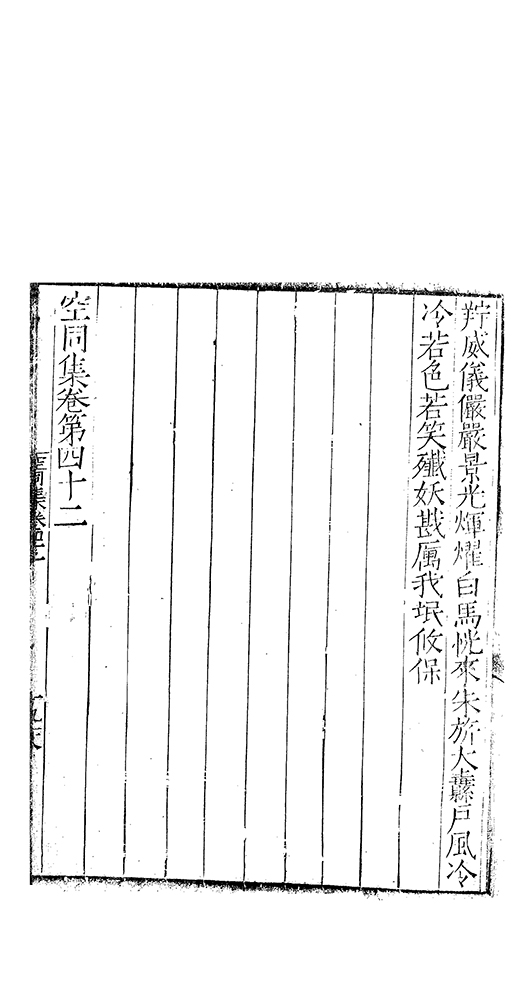 羜威儀儼嚴景光煇燿白馬恍來朱旂大纛戶風冷
冷若色若笑殲妖戡厲我氓攸保
空同集卷第四十二
空同集卷四十二